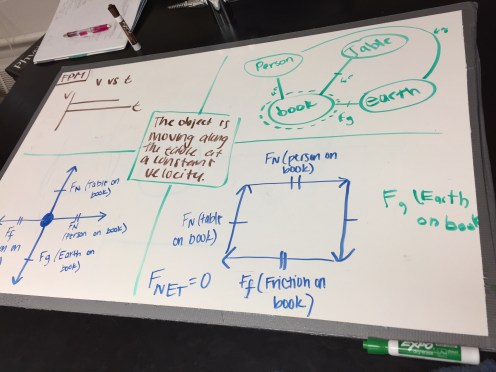 FPM
V vs t
V
t
Person
Table
book
earth
Fg
The object is
moving along
the table at
a constant
velocity.
FN (Table on
book)
Ff
FN
(Person on
book)
Fg (Earth on
book)
FN (person on
book)
FN (table
on book)
Fg (Earth
on book
Ff (Friction on
book)
FNET = 0
EXPO